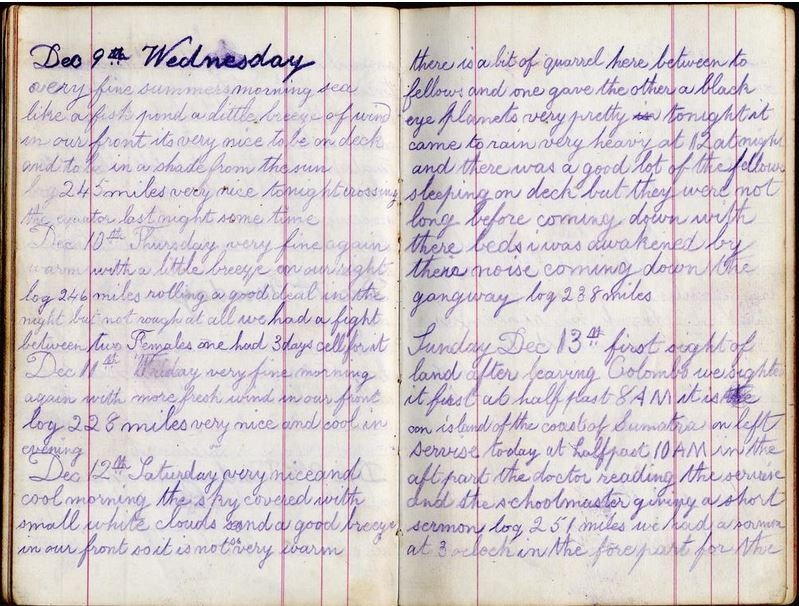 Dec 9th Wednesday
very fine summers morning sea
like a fish pond a little breeze of wind
in our front its very nice to be on deck
and to be in a shade from the sun
log 245 miles very nice tonight crossing
the equator last night some time
Dec 10th Thursday very fine again
warm with a little breeze on our right
log 246 miles rolling a good deal in the
night but not rough at all we had a fight
between two Females one had 3 days cell for it
Dec 11th Friday very fine morning
again with more fresh wind in our front
log 228 miles very nice and cool in
evening
Dec 12th Saturday very nice and
cool morning the sky covered with
small white clouds and a good breeze
in our front so it is not so very warm
there is a bit of quarrel here between to
fellows and one gave the other a black
eye planets very pretty tonight it
came to rain very heavy at 12 at night
and there was a good lot of the fellows
sleeping on deck but they were not
long before coming down with
there beds i was awakened by
there noise coming down the
gangway log 238 miles
Sunday Dec 13th first sight of
land after leaving Colombo we sighted
it first at half past 8 AM it is
an island of the coast of Sumatra on left
servise today at halfpast 10 AM in the
aft part the doctor reading the servise
and the schoolmaster giving a short
sermon log 251 miles we had a sermon
at 3 oclock in the forepart for the